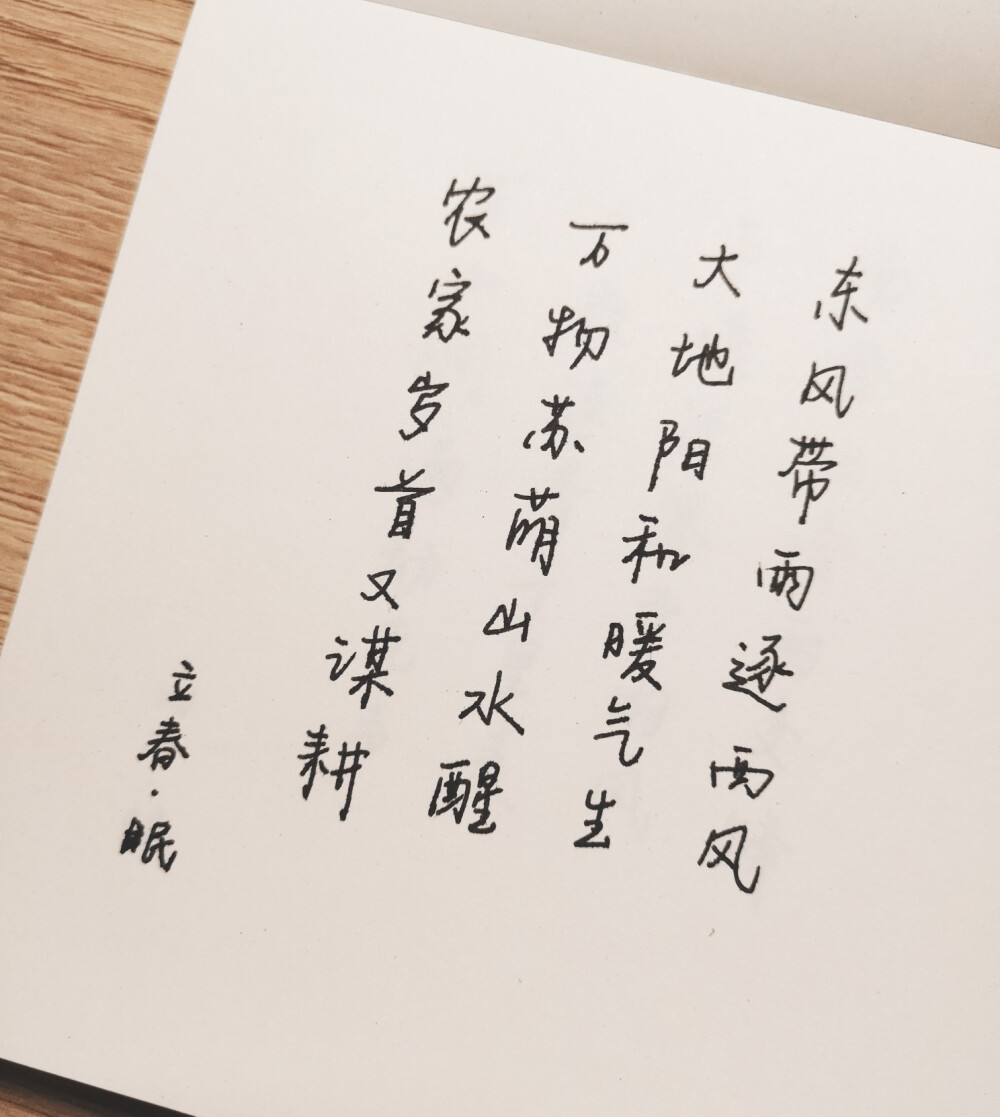 东风带雨逐西风
大地阳和暖气生
万物苏萌山水醒
农家岁首又谋耕
立春·眠